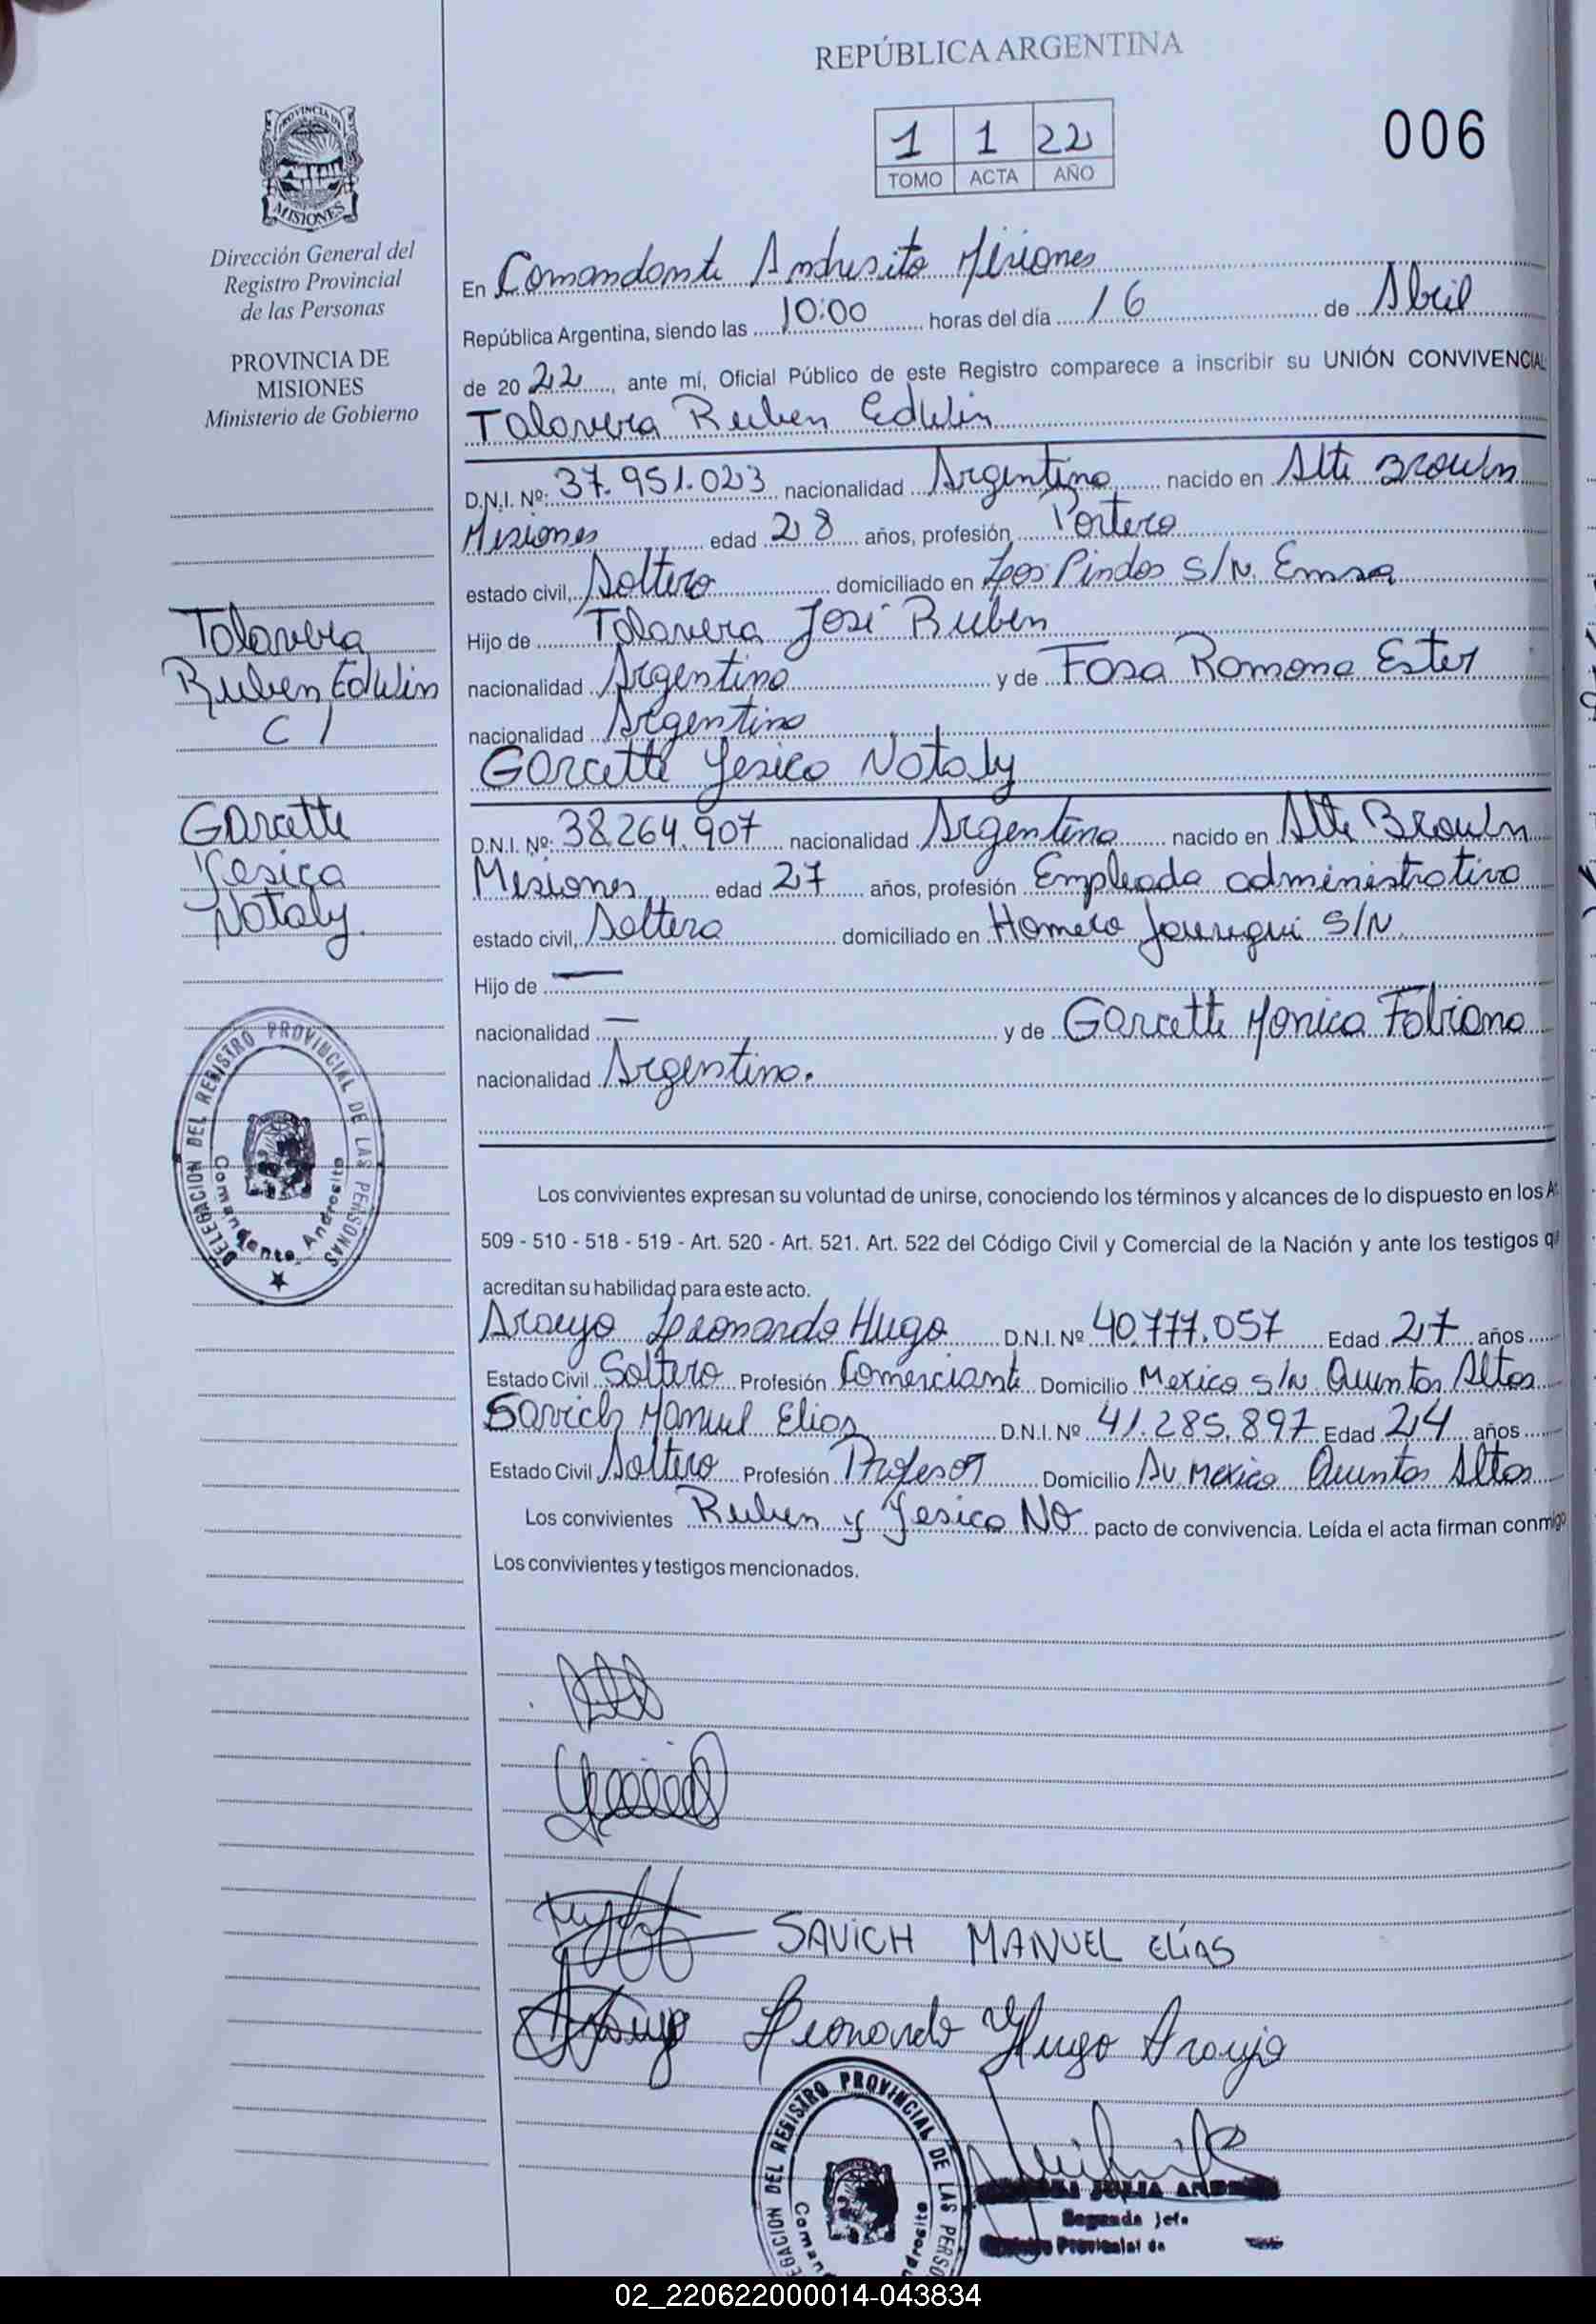 REPÚBLICA ARGENTINA
006
1 1 22
TOMO ACTA AÑO
PROVINCIA DE
MISIONES
Dirección General del
Registro Provincial
de las Personas
PROVINCIA DE
MISIONES
Ministerio de Gobierno
Talavera
Ruben Edwin
C/
Garcette
Yesica
Nataly.
DELEGACION DEL REGISTRO PROVINCIAL DE LAS PERSONAS
Comandante Andresito
En Comandante Andresito Misiones
República Argentina, siendo las 10:00 horas del día 16 de Abril
de 2022, ante mí, Oficial Público de este Registro comparece a inscribir su UNIÓN CONVIVENCIAL
Talavera Ruben Edwin
D.N.I. Nº: 37.951.023 nacionalidad Argentina nacido en Alte Brown
Misiones edad 28 años, profesión Portero
estado civil, Soltero domiciliado en Los Pindos S/N. Emsa
Hijo de Talavera José Ruben
nacionalidad Argentina y de Fosa Romona Ester
nacionalidad Argentina
Garcette Yesica Nataly
D.N.I. Nº: 38.264.907 nacionalidad Argentina nacido en Alte Brown
Misiones edad 27 años, profesión Empleada administrativa
estado civil, Soltera domiciliado en Homero Jauregui S/N.
Hijo de —
nacionalidad — y de Garcette Monica Fabiana
nacionalidad Argentina.
Los convivientes expresan su voluntad de unirse, conociendo los términos y alcances de lo dispuesto en los A
509 - 510 - 518 - 519 - Art. 520 - Art. 521. Art. 522 del Código Civil y Comercial de la Nación y ante los testigos q
acreditan su habilidad para este acto.
Araujo Leonardo Hugo D.N.I. Nº 40.777.057 Edad 27 años
Estado Civil Soltero Profesión Comerciante Domicilio Mexico S/N Quintas Altas
Savich Manuel Elias D.N.I. Nº 41.285.897 Edad 24 años
Estado Civil Soltero Profesión Profesor Domicilio Av. Mexico Quintas Altas
Los convivientes Ruben y Yesica NO pacto de convivencia. Leída el acta firman conmigo
Los convivientes y testigos mencionados.
SAVICH MANUEL ELÍAS
Araujo Leonardo Hugo Araujo
DELEGACION DEL REGISTRO PROVINCIAL DE LAS PERSO
JULIA
Segunda Jefa
Provincial de
02_220622000014-043834